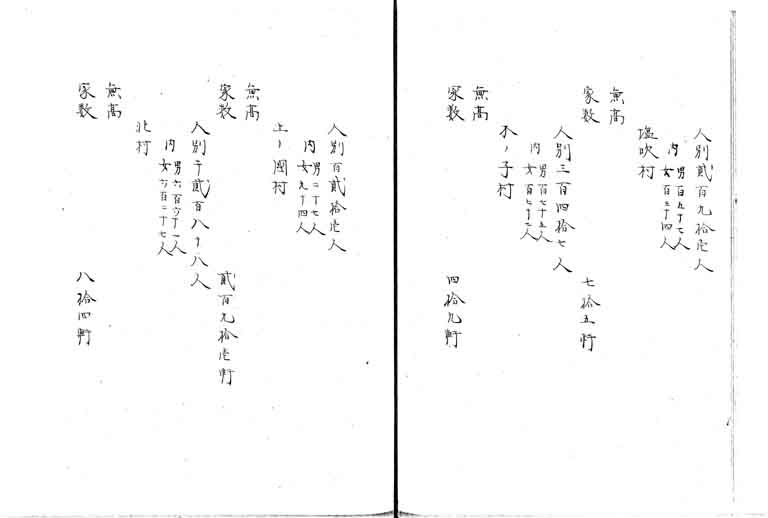 人別貳百九拾壱人
内 男百五十七人
女百三十四人
塩吹村
無高
家数 七拾五軒
人別三百四拾七人
内 男百七十五人
女百七十二人
木ノ子村
無高
家数 四拾九軒
人別百貳拾壱人
内 男二十七人
女九十四人
上ノ國村
無高
家数 貳百九拾壱軒
人別千貳百八十八人
内 男六百六十一人
女六百二十七人
北村
無高
家数 八拾四軒